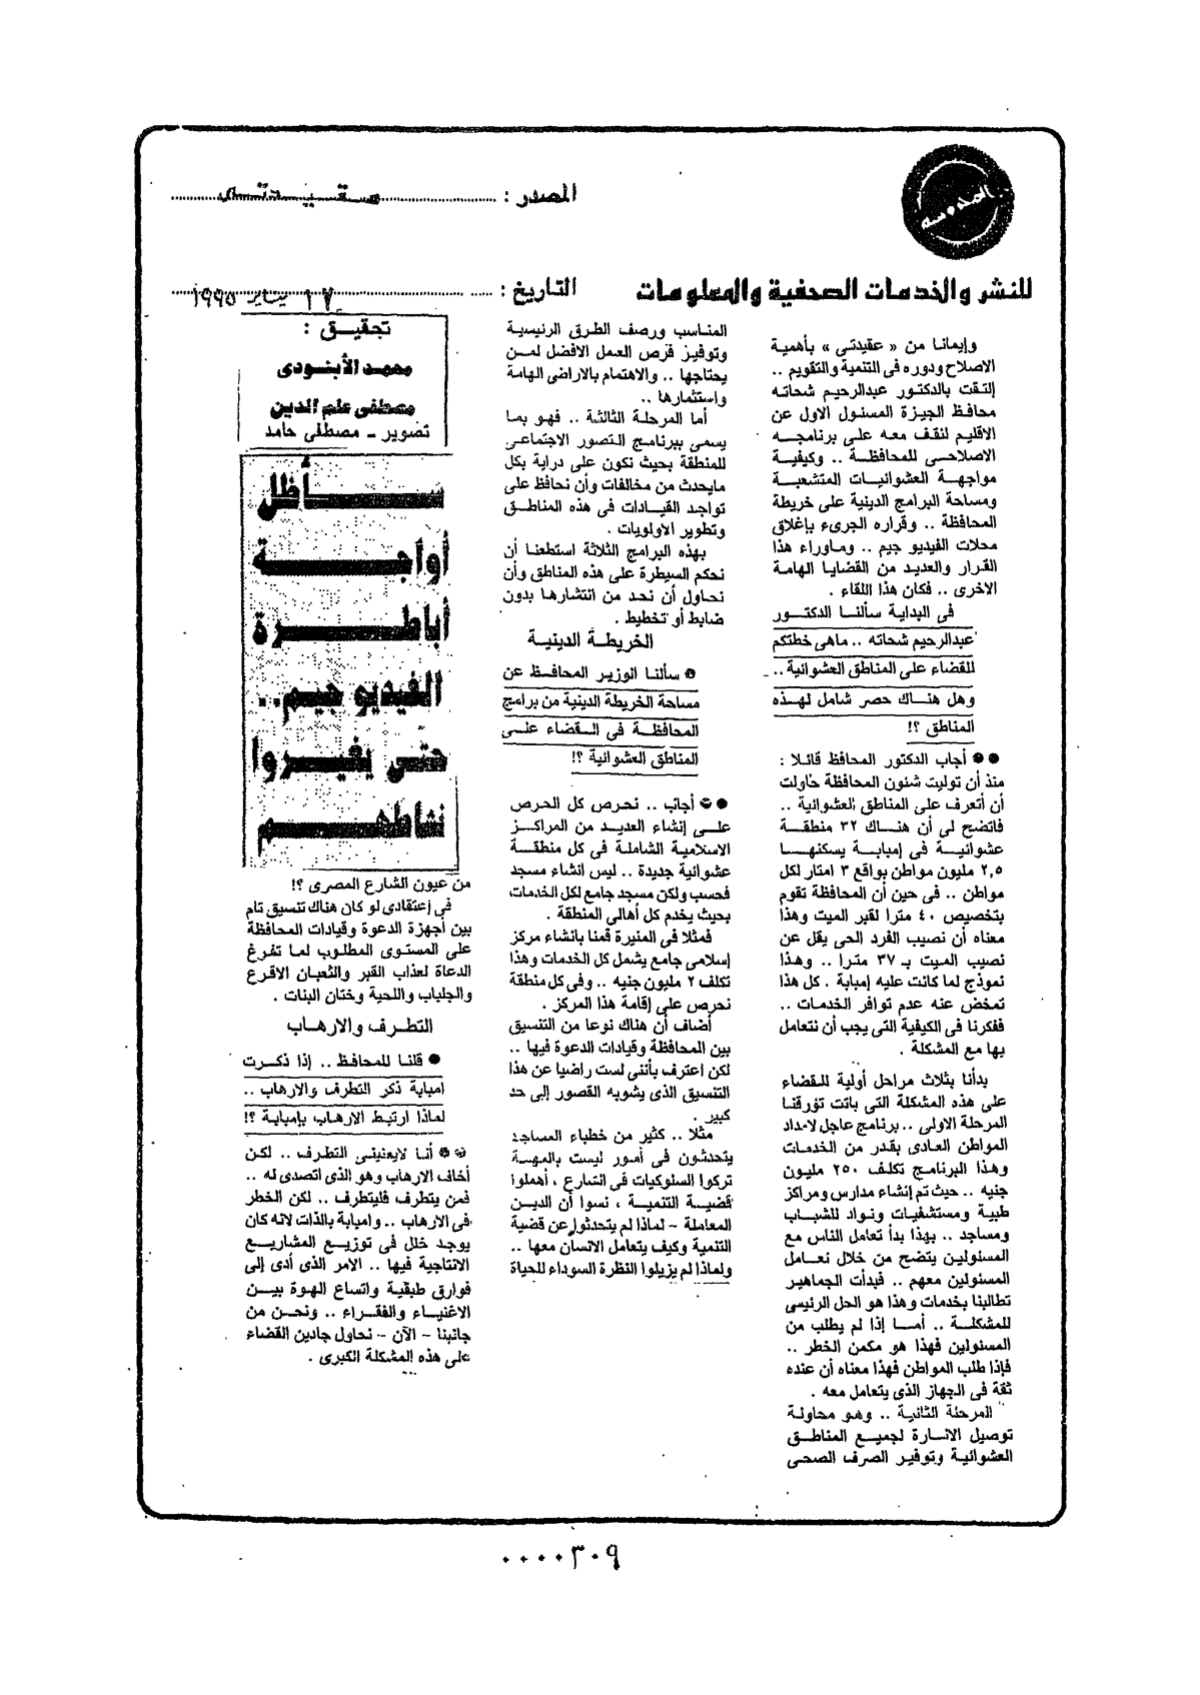 المدوسه
المصدر : عقيدتى
للنشر والخدمات الصحفية والمعلومات
التاريخ : ١٧ يناير ١٩٩٥
وإيمانا من « عقيدتى » بأهمية
الاصلاح ودوره فى التنمية والتقويم ..
التقت بالدكتور عبدالرحيم شحاته
محافظ الجيزة المسئول الاول عن
الاقليم لنقف معه على برنامجه
الاصلاحى للمحافظة .. وكيفية
مواجهة العشوائيات المتشعبة
ومساحة البرامج الدينية على خريطة
المحافظة .. وقراره الجرىء بإغلاق
محلات الفيديو جيم .. وماوراء هذا
القرار والعديد من القضايا الهامة
الاخرى .. فكان هذا اللقاء .
فى البداية سألنا الدكتور
عبدالرحيم شحاته .. ماهى خطتكم
للقضاء على المناطق العشوائية ..
وهل هناك حصر شامل لهذه
المناطق ؟!
●● أجاب الدكتور المحافظ قائلا :
منذ أن توليت شئون المحافظة حاولت
أن أتعرف على المناطق العشوائية ..
فاتضح لى أن هناك ٣٢ منطقة
عشوائية فى إمبابة يسكنها
٢,٥ مليون مواطن بواقع ٣ امتار لكل
مواطن .. فى حين أن المحافظة تقوم
بتخصيص ٤٠ مترا لقبر الميت وهذا
معناه أن نصيب الفرد الحى يقل عن
نصيب الميت بـ ٣٧ مترا .. وهذا
نموذج لما كانت عليه إمبابة . كل هذا
تمخض عنه عدم توافر الخدمات ..
ففكرنا فى الكيفية التى يجب أن نتعامل
بها مع المشكلة .
بدأنا بثلاث مراحل أولية للقضاء
على هذه المشكلة التى باتت تؤرقنا
المرحلة الاولى .. برنامج عاجل لامداد
المواطن العادى بقدر من الخدمات
وهذا البرنامج تكلف ٢٥٠ مليون
جنيه .. حيث تم إنشاء مدارس ومراكز
طبية ومستشفيات ونواد للشباب
ومساجد .. بهذا بدأ تعامل الناس مع
المسئولين يتضح من خلال تعامل
المسئولين معهم .. فبدأت الجماهير
تطالبنا بخدمات وهذا هو الحل الرئيسى
للمشكلة .. أما إذا لم يطلب من
المسئولين فهذا هو مكمن الخطر ..
فإذا طلب المواطن فهذا معناه أن عنده
ثقة فى الجهاز الذى يتعامل معه .
المرحلة الثانية .. وهو محاولة
توصيل الانارة لجميع المناطق
العشوائية وتوفير الصرف الصحى
المناسب ورصف الطرق الرئيسية
وتوفيز فرص العمل الافضل لمن
يحتاجها .. والاهتمام بالاراضى الهامة
واستثمارها ..
أما المرحلة الثالثة .. فهو بما
يسمى ببرنامج التصور الاجتماعى
للمنطقة بحيث نكون على دراية بكل
مايحدث من مخالفات وأن نحافظ على
تواجد القيادات فى هذه المناطق
وتطوير الاولويات .
بهذه البرامج الثلاثة استطعنا أن
نحكم السيطرة على هذه المناطق وأن
نحاول أن نحد من انتشارها بدون
ضابط أو تخطيط .
الخريطة الدينية
● سألنا الوزير المحافظ عن
مساحة الخريطة الدينية من برامج
المحافظة فى القضاء على
المناطق العشوائية ؟!
●● أجاب .. نحرص كل الحرص
على إنشاء العديد من المراكز
الاسلامية الشاملة فى كل منطقة
عشوائية جديدة .. ليس انشاء مسجد
فحسب ولكن مسجد جامع لكل الخدمات
بحيث يخدم كل أهالى المنطقة .
فمثلا فى المنيرة قمنا بانشاء مركز
إسلامى جامع يشمل كل الخدمات وهذا
تكلف ٢ مليون جنيه .. وفى كل منطقة
نحرص على إقامة هذا المركز .
أضاف أن هناك نوعا من التنسيق
بين المحافظة وقيادات الدعوة فيها ..
لكن اعترف بأننى لست راضيا عن هذا
التنسيق الذى يشوبه القصور إلى حد
كبير .
مثلا .. كثير من خطباء المساجد
يتحدثون فى أمور ليست بالمهمة
تركوا السلوكيات فى الشارع ، أهملوا
قضية التنمية ، نسوا أن الدين
المعاملة - لماذا لم يتحدثوا عن قضية
التنمية وكيف يتعامل الانسان معها ..
ولماذا لم يزيلوا النظرة السوداء للحياة
تحقيق :
محمد الأبنودى
مصطفى علم الدين
تصوير - مصطفى حامد
سأظل
أواجه
أباطرة
الفيديو جيم ..
حتى يغيروا
نشاطهم
من عيون الشارع المصرى ؟!
فى إعتقادى لو كان هناك تنسيق تام
بين أجهزة الدعوة وقيادات المحافظة
على المستوى المطلوب لما تفرغ
الدعاة لعذاب القبر والثعبان الاقرع
والجلباب واللحية وختان البنات .
التطرف والارهاب
● قلنا للمحافظ .. إذا ذكرت
إمبابة ذكر التطرف والارهاب ..
لماذا ارتبط الارهاب بإمبابة ؟!
●● أنا لايعنينى التطرف .. لكن
أخاف الارهاب وهو الذى اتصدى له ..
فمن يتطرف فليتطرف .. لكن الخطر
فى الارهاب .. وامبابة بالذات لانه كان
يوجد خلل فى توزيع المشاريع
الانتاجية فيها .. الامر الذى أدى إلى
فوارق طبقية واتساع الهوة بين
الاغنياء والفقراء .. ونحن من
جانبنا - الآن - نحاول جادين القضاء
على هذه المشكلة الكبرى .
٠٠٠٠٣٠٩